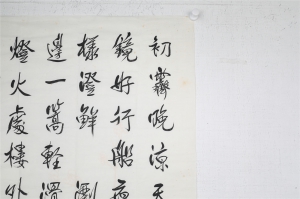 初霽晚涼天
鏡好行船夜
樣澄鮮
邊一篙輕滑
燈火處樓外